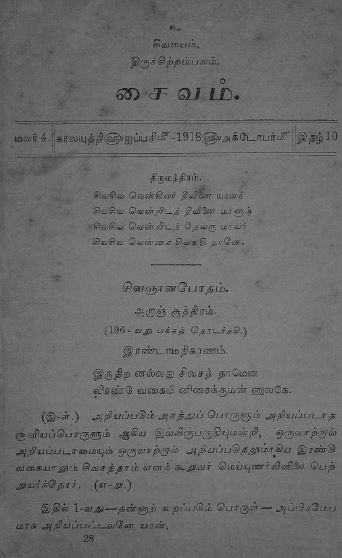 உ
சிவமயம்,
திருச்சிற்றம்பலம்.
சைவம்.
மலர் 4. காலயுத்தி௵ஐப்பசி௴-1918௵அக்டோபர்௴ இதழ் 10
திருமந்திரம்.
சிவசிவ வென்கிலர் தீவினை யாளர்
சிவசிவ வென்றிடத் தீவினை மாளுந்
சிவசிவ வென்றிடத் தேவரு மாவர்
சிவசிவ வென்னச் சிவகதி தானே.
சிவஞானபோதம்.
ஆறாஞ் சூத்திரம்.
(196-வது பக்கத் தொடர்ச்சி.)
இரண்டாமதிகரணம்.
இருதிற னல்லது சிவசத் தாமென
விரண்டு வகையி னிசைக்குமன் னுலகே.
(இ-ள்.) அறியப்படும் அசத்துப் பொருளும் அறியப்படாத
சூனியப்பொருளும் ஆகிய இவ்விருபகுதியுமன்றி, ஒருவாற்றால்
அறியப்படாமையும் ஒருவாற்றால் அறியப்படுதலுமாகிய இரண்டு
வகையாலும் சிவசத்தாம் எனக் கூறுவர் மெய்யுணர்வினிலை பெற்
றுயர்ந்தோர். (எ-று.)
இதில் 1-வது—தன்னாற் கூறப்படும் பொருள்—அப்பிரமேய
மாக அறியப்பட்டவனே யரன்,
28